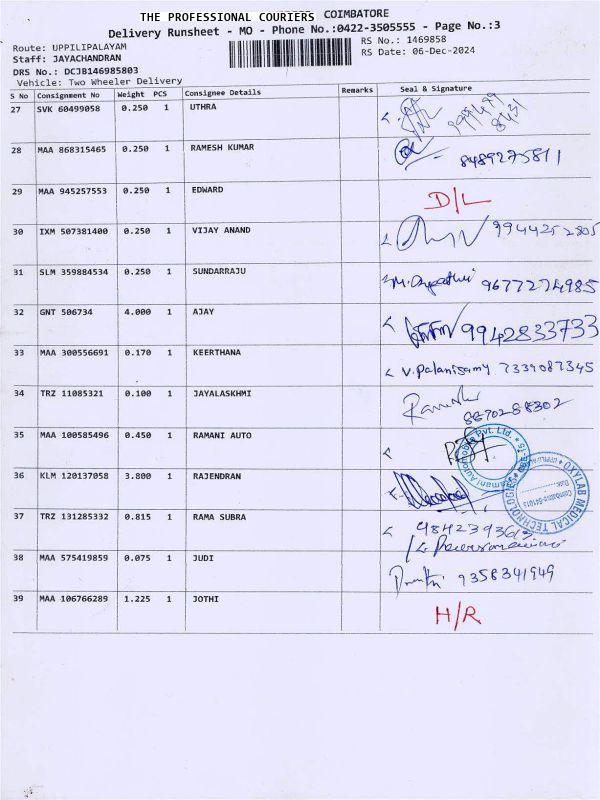 THE PROFESSIONAL COURIERS COIMBATORE
Delivery Runsheet - MO - Phone No.:0422-3505555 - Page No.:3
Route: UPPILIPALAYAM
RS No.: 1469858
Staff: JAYACHANDRAN
RS Date: 06-Dec-2024
DRS No.: DCJB146985803
Vehicle: Two Wheeler Delivery
S No Consignment No Weight PCS Consignee Details Remarks Seal & Signature
27 SVK 60499058 0.250 1 UTHRA
28 MAA 868315465 0.250 1 RAMESH KUMAR 8489275811
29 MAA 945257553 0.250 1 EDWARD D/L
30 IXM 507381400 0.250 1 VIJAY ANAND 9944252805
31 SLM 359884534 0.250 1 SUNDARRAJU 9677274985
32 GNT 506734 4.000 1 AJAY 9942833733
33 MAA 300556691 0.170 1 KEERTHANA V. Palanisamy 7339087345
34 TRZ 11085321 0.100 1 JAYALASKHMI 8870288302
35 MAA 100585496 0.450 1 RAMANI AUTO
Ramani Automobile Pvt. Ltd.
36 KLM 120137058 3.800 1 RAJENDRAN
OXYLAB MEDICAL TECHNOLOGIES
37 TRZ 131285332 0.815 1 RAMA SUBRA
38 MAA 575419859 0.075 1 JUDI 9358341949
39 MAA 106766289 1.225 1 JOTHI H/R